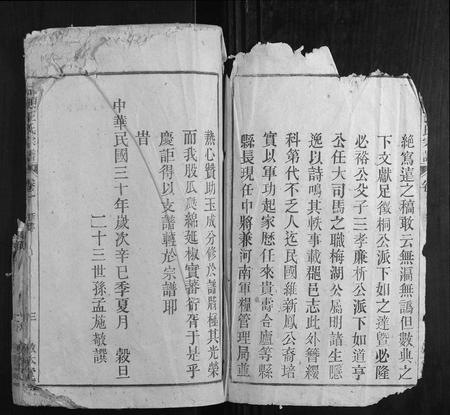 絶寫遠之稿敢云無漏無譌但數典之
下文獻足徵桐公派下如之蓮暨必隆
必裕公父子三孝廉析公派下如道亨
公任大司馬之職梅湖公膺明諸生隱
逸以詩鳴其軼事載邑志此外簪纓
科第代不乏人迄民國維新鳳公裔培
實以軍功起家歷任來貴壽合廬等縣
縣長現任中將兼河南軍糧管理局並
熱心贊助玉成分修於譜版極其光榮
而我股瓜瓞綿延椒實蕃衍胥于是乎
慶詎得以支譜轉於宗譜耶
昔
中華民國三十年歲次辛巳季夏月 穀旦
二十三世孫孟施敬譔